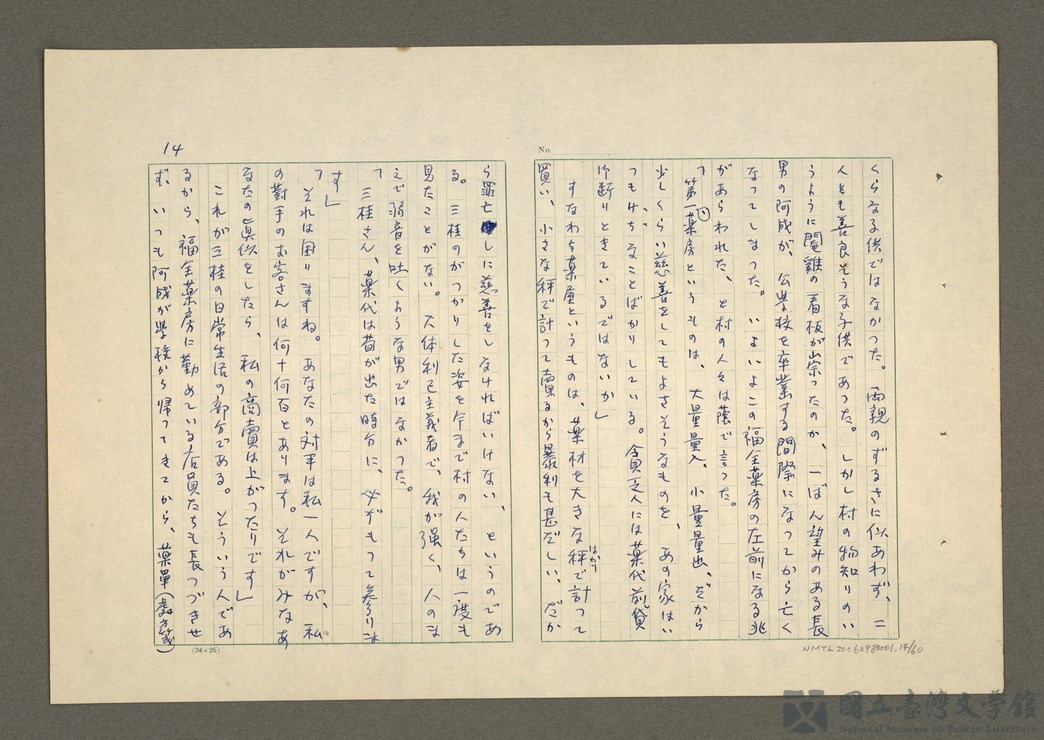 No
くらな子供ではなかった。両親のずるさに似あわず、二
人とも善良そうな子供であった。しかし村の物知りのい
うように閹鶏の看板が祟ったのか、一ばん望みのある長
男の阿成が、公学校を卒業する間際になってから亡く
なってしまった。いよいよこの福全薬房の左前になる兆
があらわれた、と村の人々は蔭で言った。
「第一薬房というものは、大量量入、小量量出、だから
少しくらい慈善をしてもよさそうなものを、あの家はい
つもけちなことばかりしている。貧乏人には薬代前貸
は断りときているではないか」
すなわち薬屋というものは、薬材を大きな秤で計って
はかり
買い、小さな秤で計って売るから暴利も甚だしい、だか
14
ら罪亡しに慈善をしなければいけない、というのであ
る。三桂のがっかりした姿を今まで村の人たちは一度も
見たことがない。大体利己主義者で、我が強く、人のま
えで弱音を吐くような男ではなかった。
「三桂さん、薬代は苗が出た時分に、必ずもって参りま
す」
「それは困りますね。あなたの対手は私一人ですが、私
の対手のお客さんは何十何百とあります。それがみなあ
なたの真似をしたら、私の商売は上がったりです」
これが三桂の日常生活の部分である。そういう人であ
るから、福全薬房に勤めている店員たちも長つづきせ
ず、いつも阿成が学校から帰ってきてから、薬単(処方箋)
(24×25)
NMTL20060980001.14/60
國立臺灣文學館
National Museum of Taiwan Literature